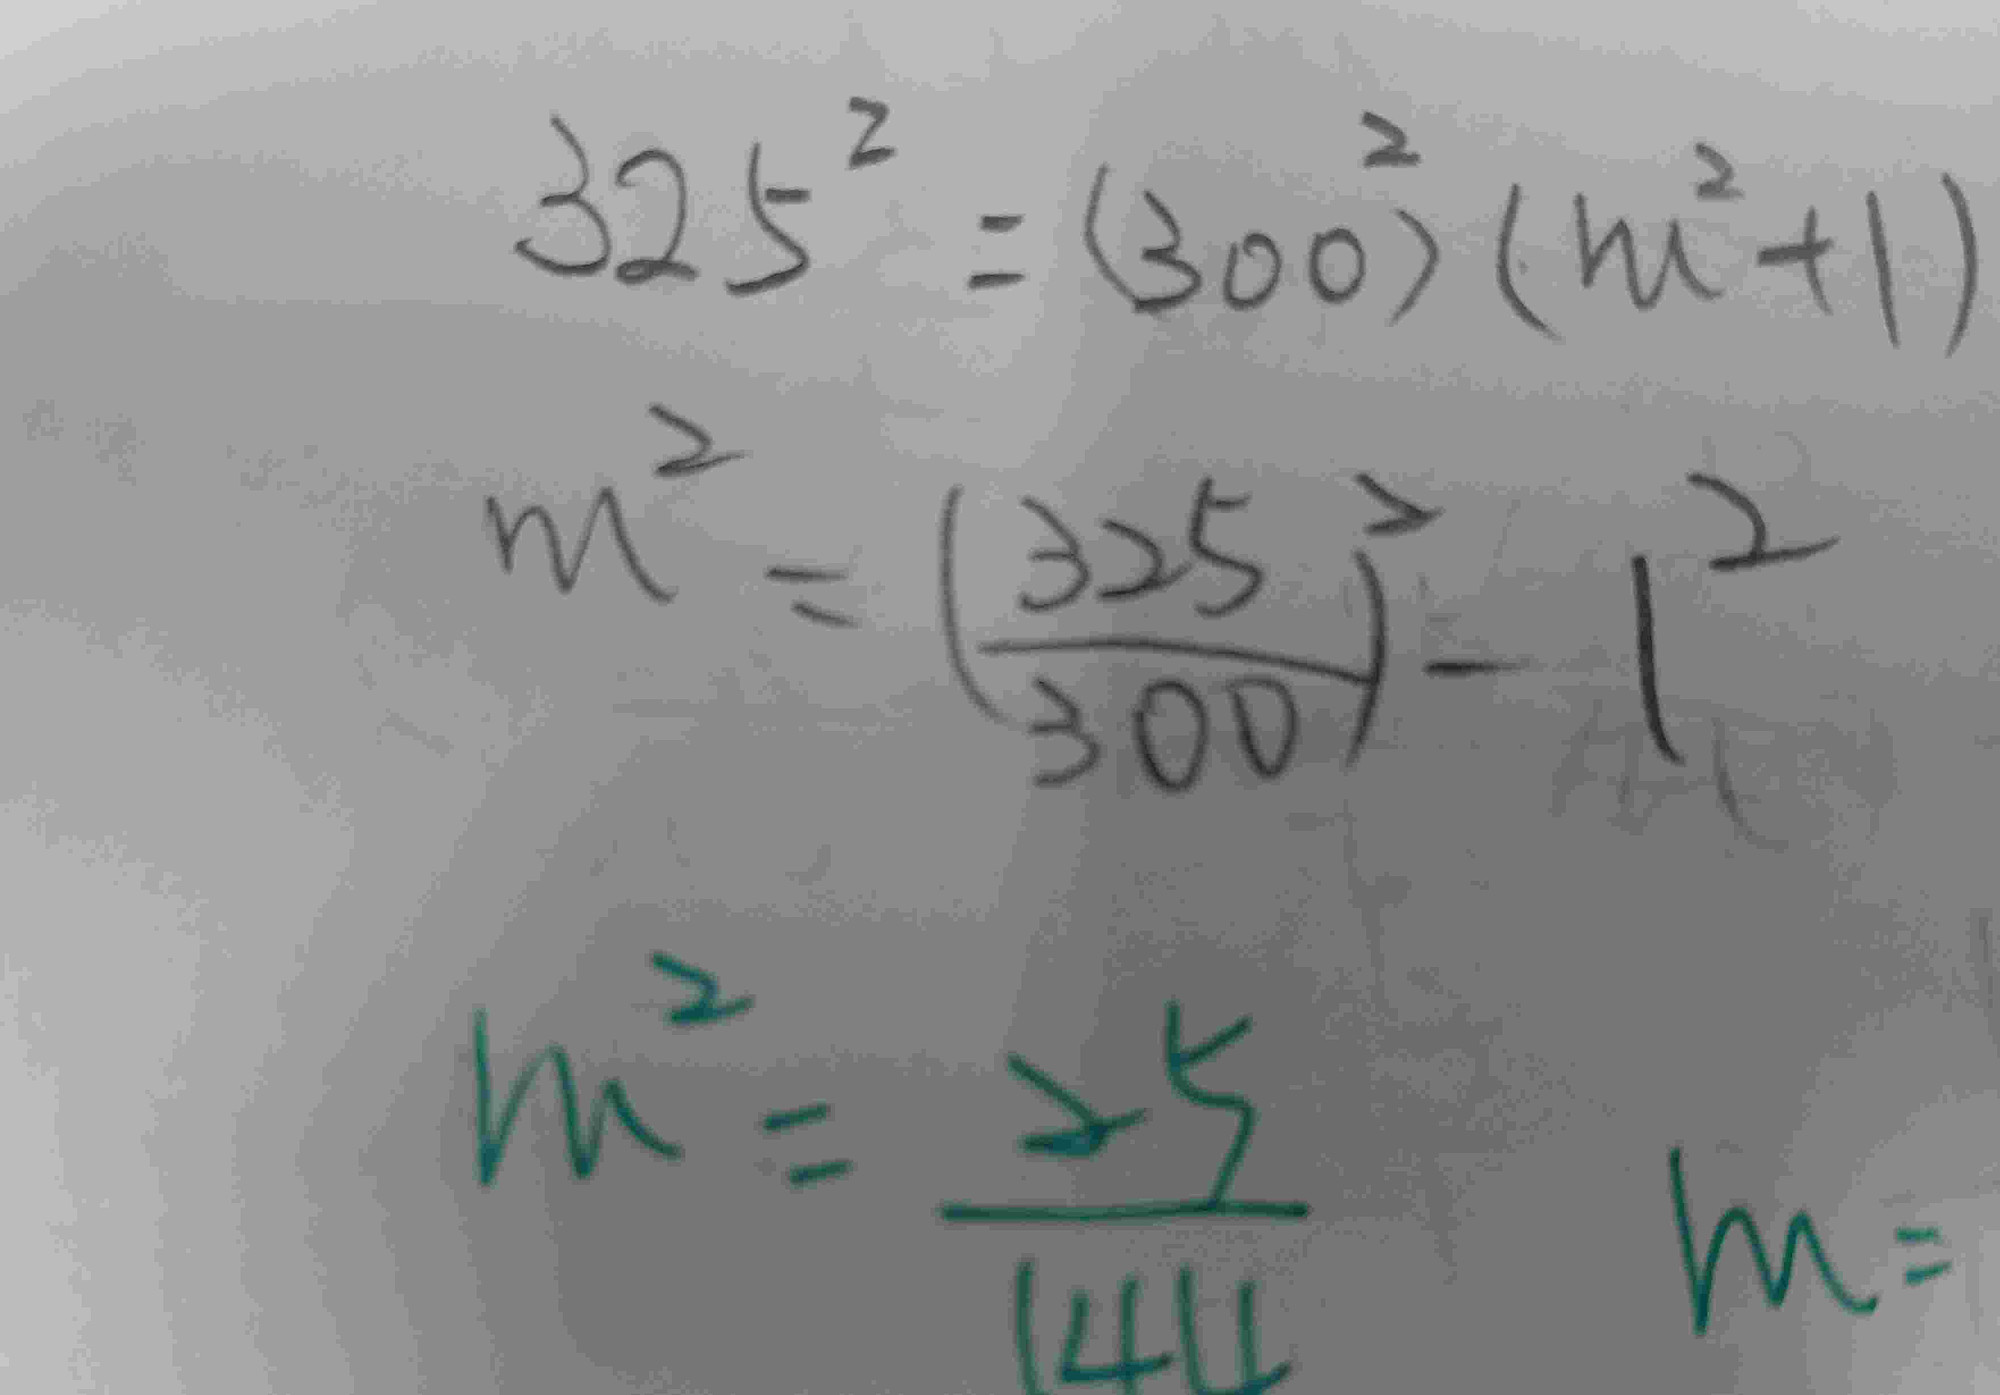 325² = (300²)(m²+1)
m² = (325/300)² - 1²
m² = 25/144
m =